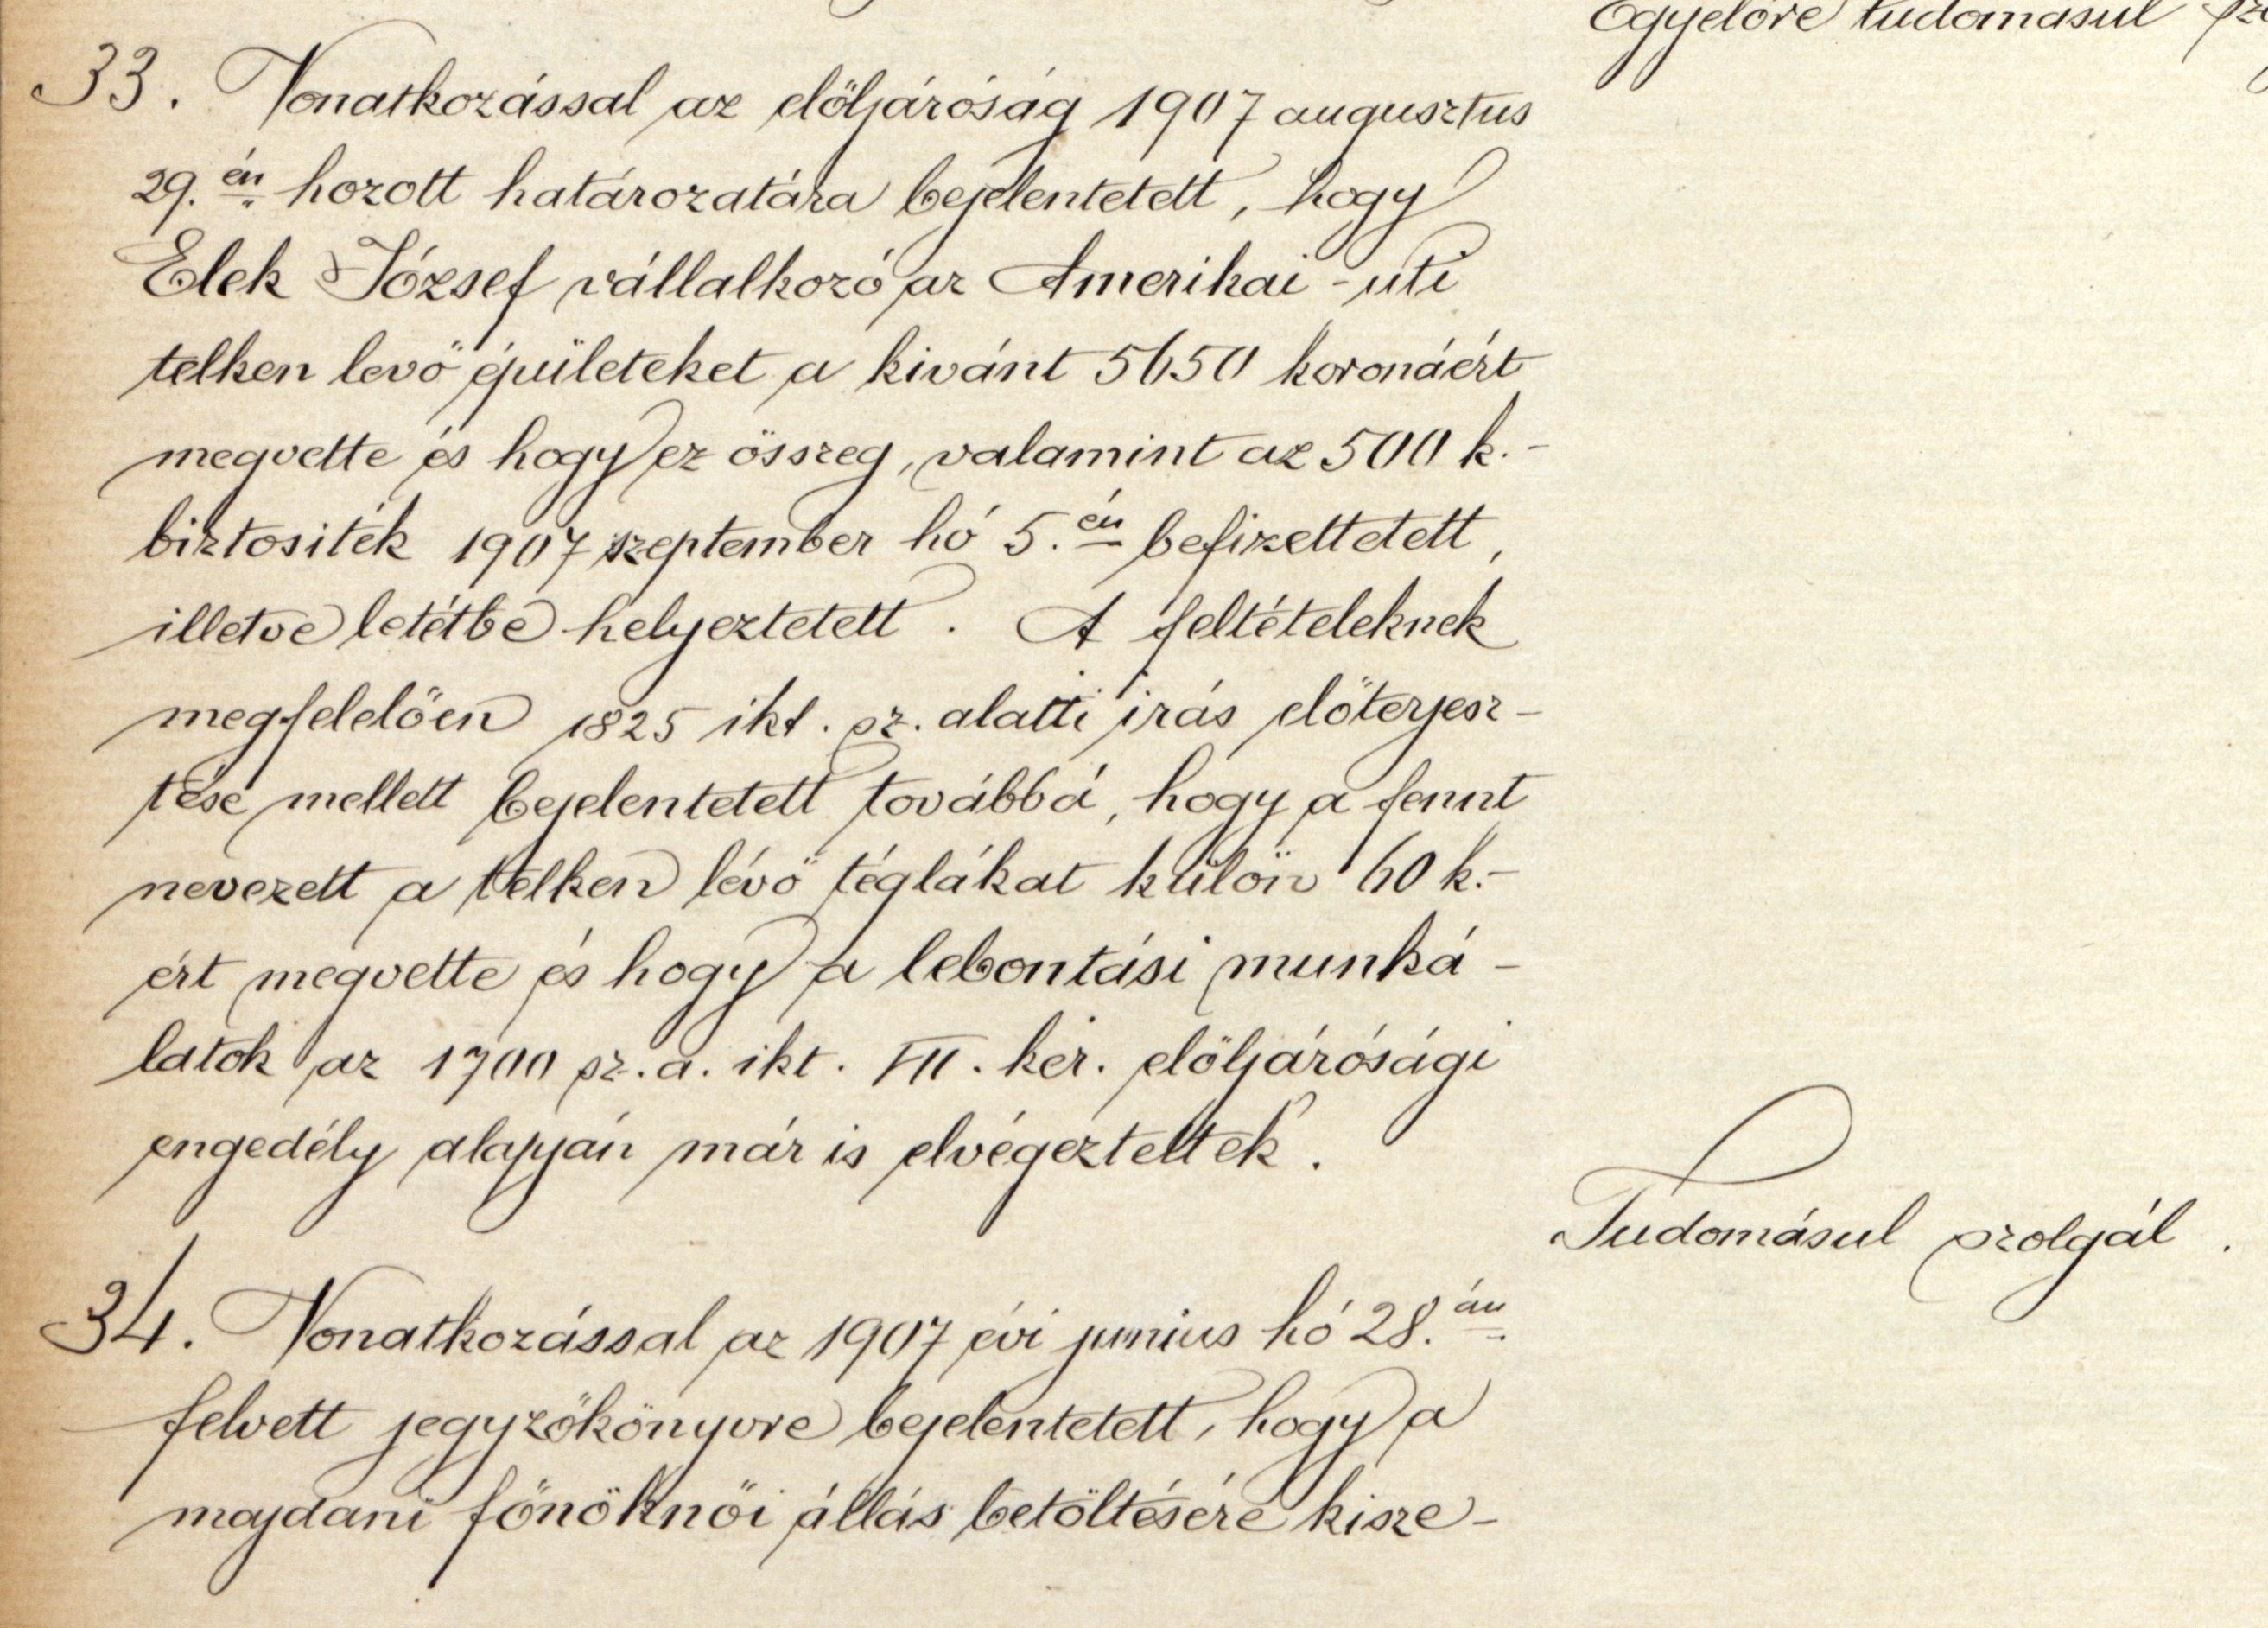 Egyelőre tudomásul
33. Vonatkozással az elöljáróság 1907 augusztus
29.én hozott határozatára bejelentetett, hogy
Elek József vállalkozó az Amerikai-uti
telken levő épületeket a kivánt 5650 koronáért
megvette és hogy ez összeg, valamint az 500 k.-
biztositék 1907 szeptember hó 5.én befizettetett,
illetve letétbe helyeztetett. A feltételeknek
megfelelően 1825 ikt. sz. alatti irás előterjesz-
tése mellett bejelentetett továbbá, hogy a fennt
nevezett a telken lévő téglákat külön 60 k.-
ért megvette és hogy a lebontási munká-
latok az 1700 sz. a. ikt. VII. ker. elöljárósági
engedély alapján már is elvégeztettek.
Tudomásul szolgál.
34. Vonatkozással az 1907 évi junius hó 28.án
felvett jegyzőkönyvre bejelentetett, hogy a
majdani főnöknői állás betöltésére kisze-